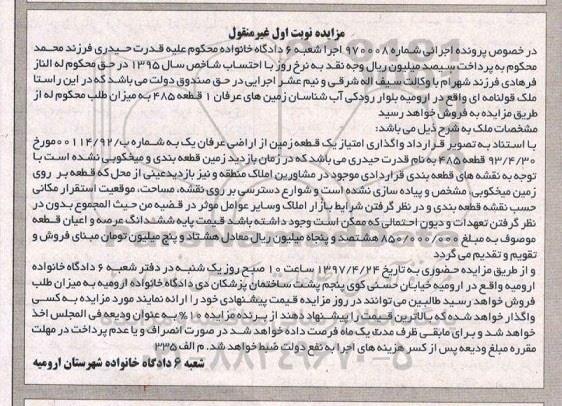 مزایده نوبت اول غیرمنقول
در خصوص پرونده اجرائی شماره ۹۷۰۰۰۸ اجرا شعبه ۶ دادگاه خانواده محکوم علیه قدرت حیدری فرزند محمد
محکوم به پرداخت سیصد میلیون ریال وجه نقد به نرخ روز با احتساب شاخص سال ۱۳۹۵ در حق محکوم له الناز
فرهادی فرزند شهرام با وکالت سیف اله شرقی و نیم عشر اجرایی در حق صندوق دولت می باشد که در این راستا
ملک قولنامه ای واقع در ارومیه بلوار رودکی آب شناسان زمین های عرفان ۱ قطعه ۴۸۵ به میزان طلب محکوم له از
طریق مزایده به فروش خواهد رسید
مشخصات ملک به شرح ذیل می باشد:
با استناد به تصویر قرارداد واگذاری امتیاز یک قطعه زمین از اراضی عرفان یک به شماره ب/۰۰۱۱۴/۹۲ مورخ
۹۳/۴/۳۰ قطعه ۴۸۵ به نام قدرت حیدری می باشد که در زمان بازدید زمین قطعه بندی و میخکوبی نشده است با
توجه به نقشه های قطعه بندی قراردادی موجود در مشاورین املاک منطقه و نیز بازدید عینی از محل که قطعه بر روی
زمین میخکوبی مشخص و پیاده سازی نشده است و شوارع دسترسی بر روی نقشه، مساحت، موقعیت استقرار مکانی
حسب نقشه قطعه بندی و در نظر گرفتن شرایط بازار املاک وسایر عوامل موثر در قضیه من حیث المجموع بدون در
نظر گرفتن تعهدات و دیون احتمالی که ممکن است وجود داشته باشد قیمت پایه ششدانگ عرصه و اعیان قطعه
موصوف به مبلغ ۸۵۰/۰۰۰/۰۰۰ هشتصد و پنجاه میلیون ریال معادل هشتاد و پنج میلیون تومان مبنای فروش و
تقویم و تقدیم می گردد
و از طریق مزایده حضوری به تاریخ ۱۳۹۷/۴/۲۴ ساعت ۱۰ صبح روز یک شنبه در دفتر شعبه ۶ دادگاه خانواده
ارومیه واقع در ارومیه خیابان حسنی کوی پنجم پشت ساختمان پزشکان دی دادگاه خانواده ارومیه به میزان طلب
فروش خواهد رسید طالبین می توانند در روز مزایده قیمت پیشنهادی خود را ارائه نمایند مورد مزایده به کسی
واگذار خواهد شد که بالاترین قیمت را پیشنهاد دهند از برنده مزایده ۱۰٪ به عنوان ودیعه فی المجلس اخذ
خواهد شد و برای مابقی ظرف مدت یک ماه فرصت داده خواهد شد در صورت انصراف و یا عدم پرداخت در مهلت
مقرره مبلغ ودیعه پس از کسر هزینه های اجرا به نفع دولت ضبط خواهد شد. م الف ۳۳۵
شعبه ۶ دادگاه خانواده شهرستان ارومیه